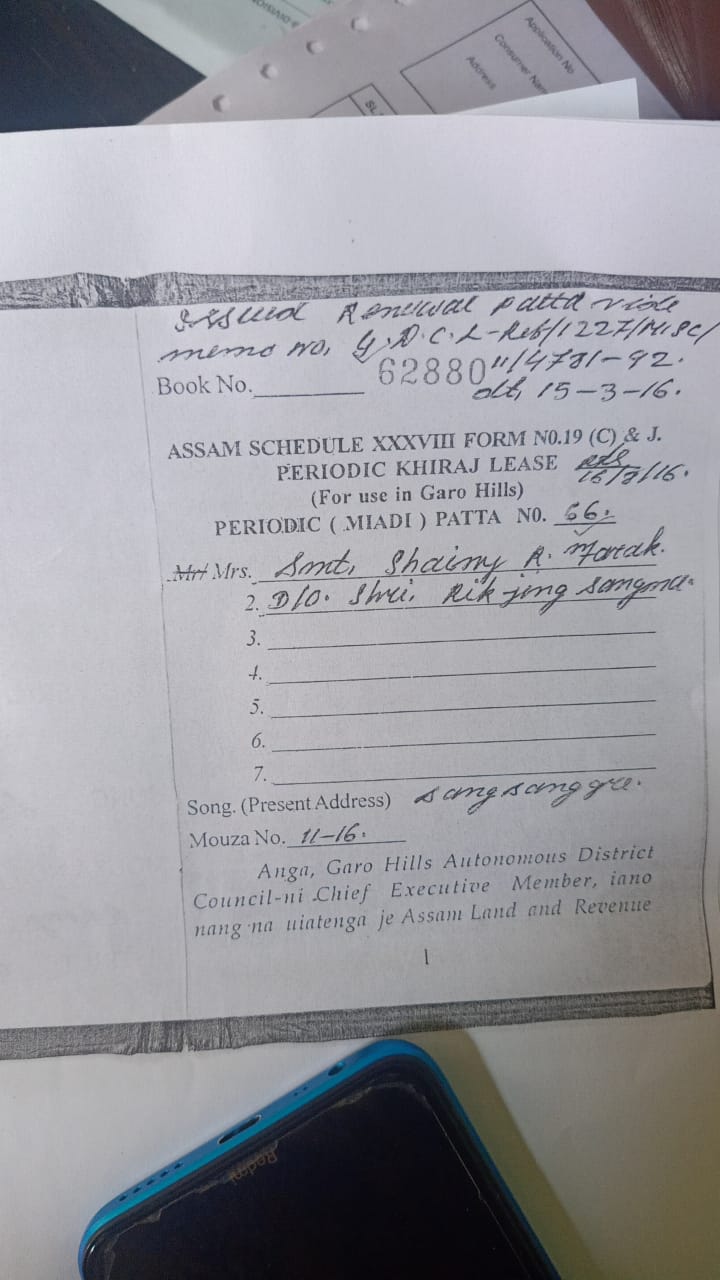 Application No
Consumer Nam
Address
SL.
Issued Renewal patta vide
memo no, G.D.C.L-Reb/1227/Misc/
Book No. 62880 11/4781-92.
dt, 15-3-16.
ASSAM SCHEDULE XXXVIII FORM N0.19 (C) & J.
PERIODIC KHIRAJ LEASE
(For use in Garo Hills)
PERIODIC ( MIADI ) PATTA N0. 66.
Mr/ Mrs. Smt. Shainy R. Marak.
2. D/O. Shri. Rikjing Sangma.
3.
4.
5.
6.
7.
Song. (Present Address) Sangsanggre.
Mouza No. 11-16.
Anga, Garo Hills Autonomous District
Council-ni Chief Executive Member, iano
nang·na uiatenga je Assam Land and Revenue
1
Redmi